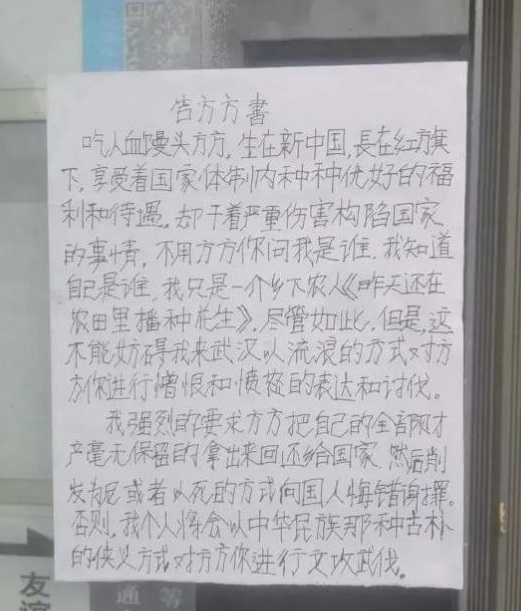 告方方書
吃人血馒头方方,生在新中国,長在红旗
下,享受着国家体制内种种优好的福
利和待遇,却干着严重伤害构陷国家
的事情,不用方方你问我是谁,我知道
自己是谁,我只是一个乡下农人《昨天还在
农田里播种花生》,尽管如此,但是,这
不能妨碍我来武汉以流浪的方式对方
方你进行憎恨和愤怒的表达和讨伐。
我强烈的要求方方把自己的全部财
产毫无保留的拿出来回还给国家,然后削
发为尼或者以死的方式向国人悔错谢罪。
否则,我个人将会以中华民族那种古朴
的侠义方式对方方你进行文攻武伐。
友谊
通 等